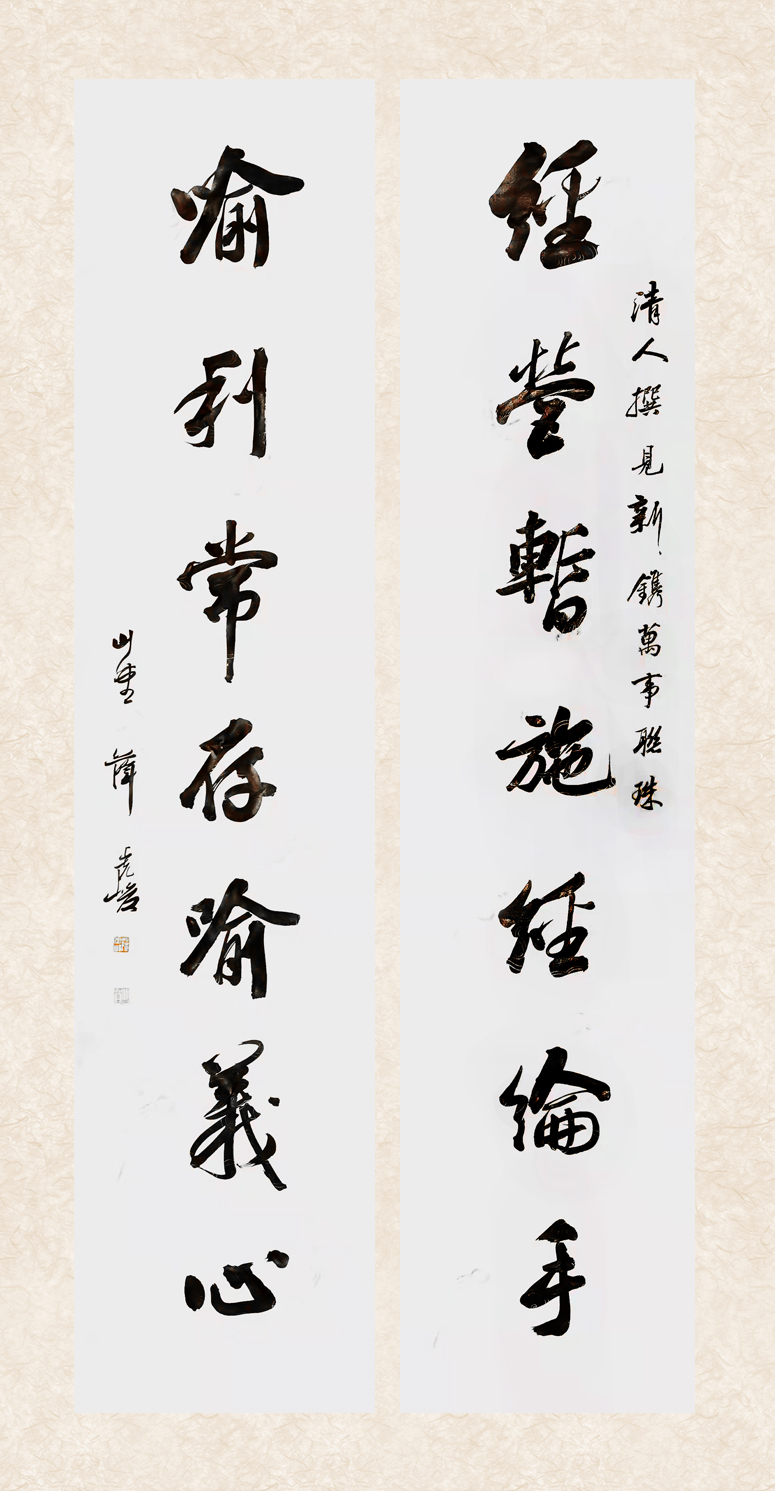 清人撰見新鐫萬事聯珠
經營暫施經綸手
喻利常存喻義心